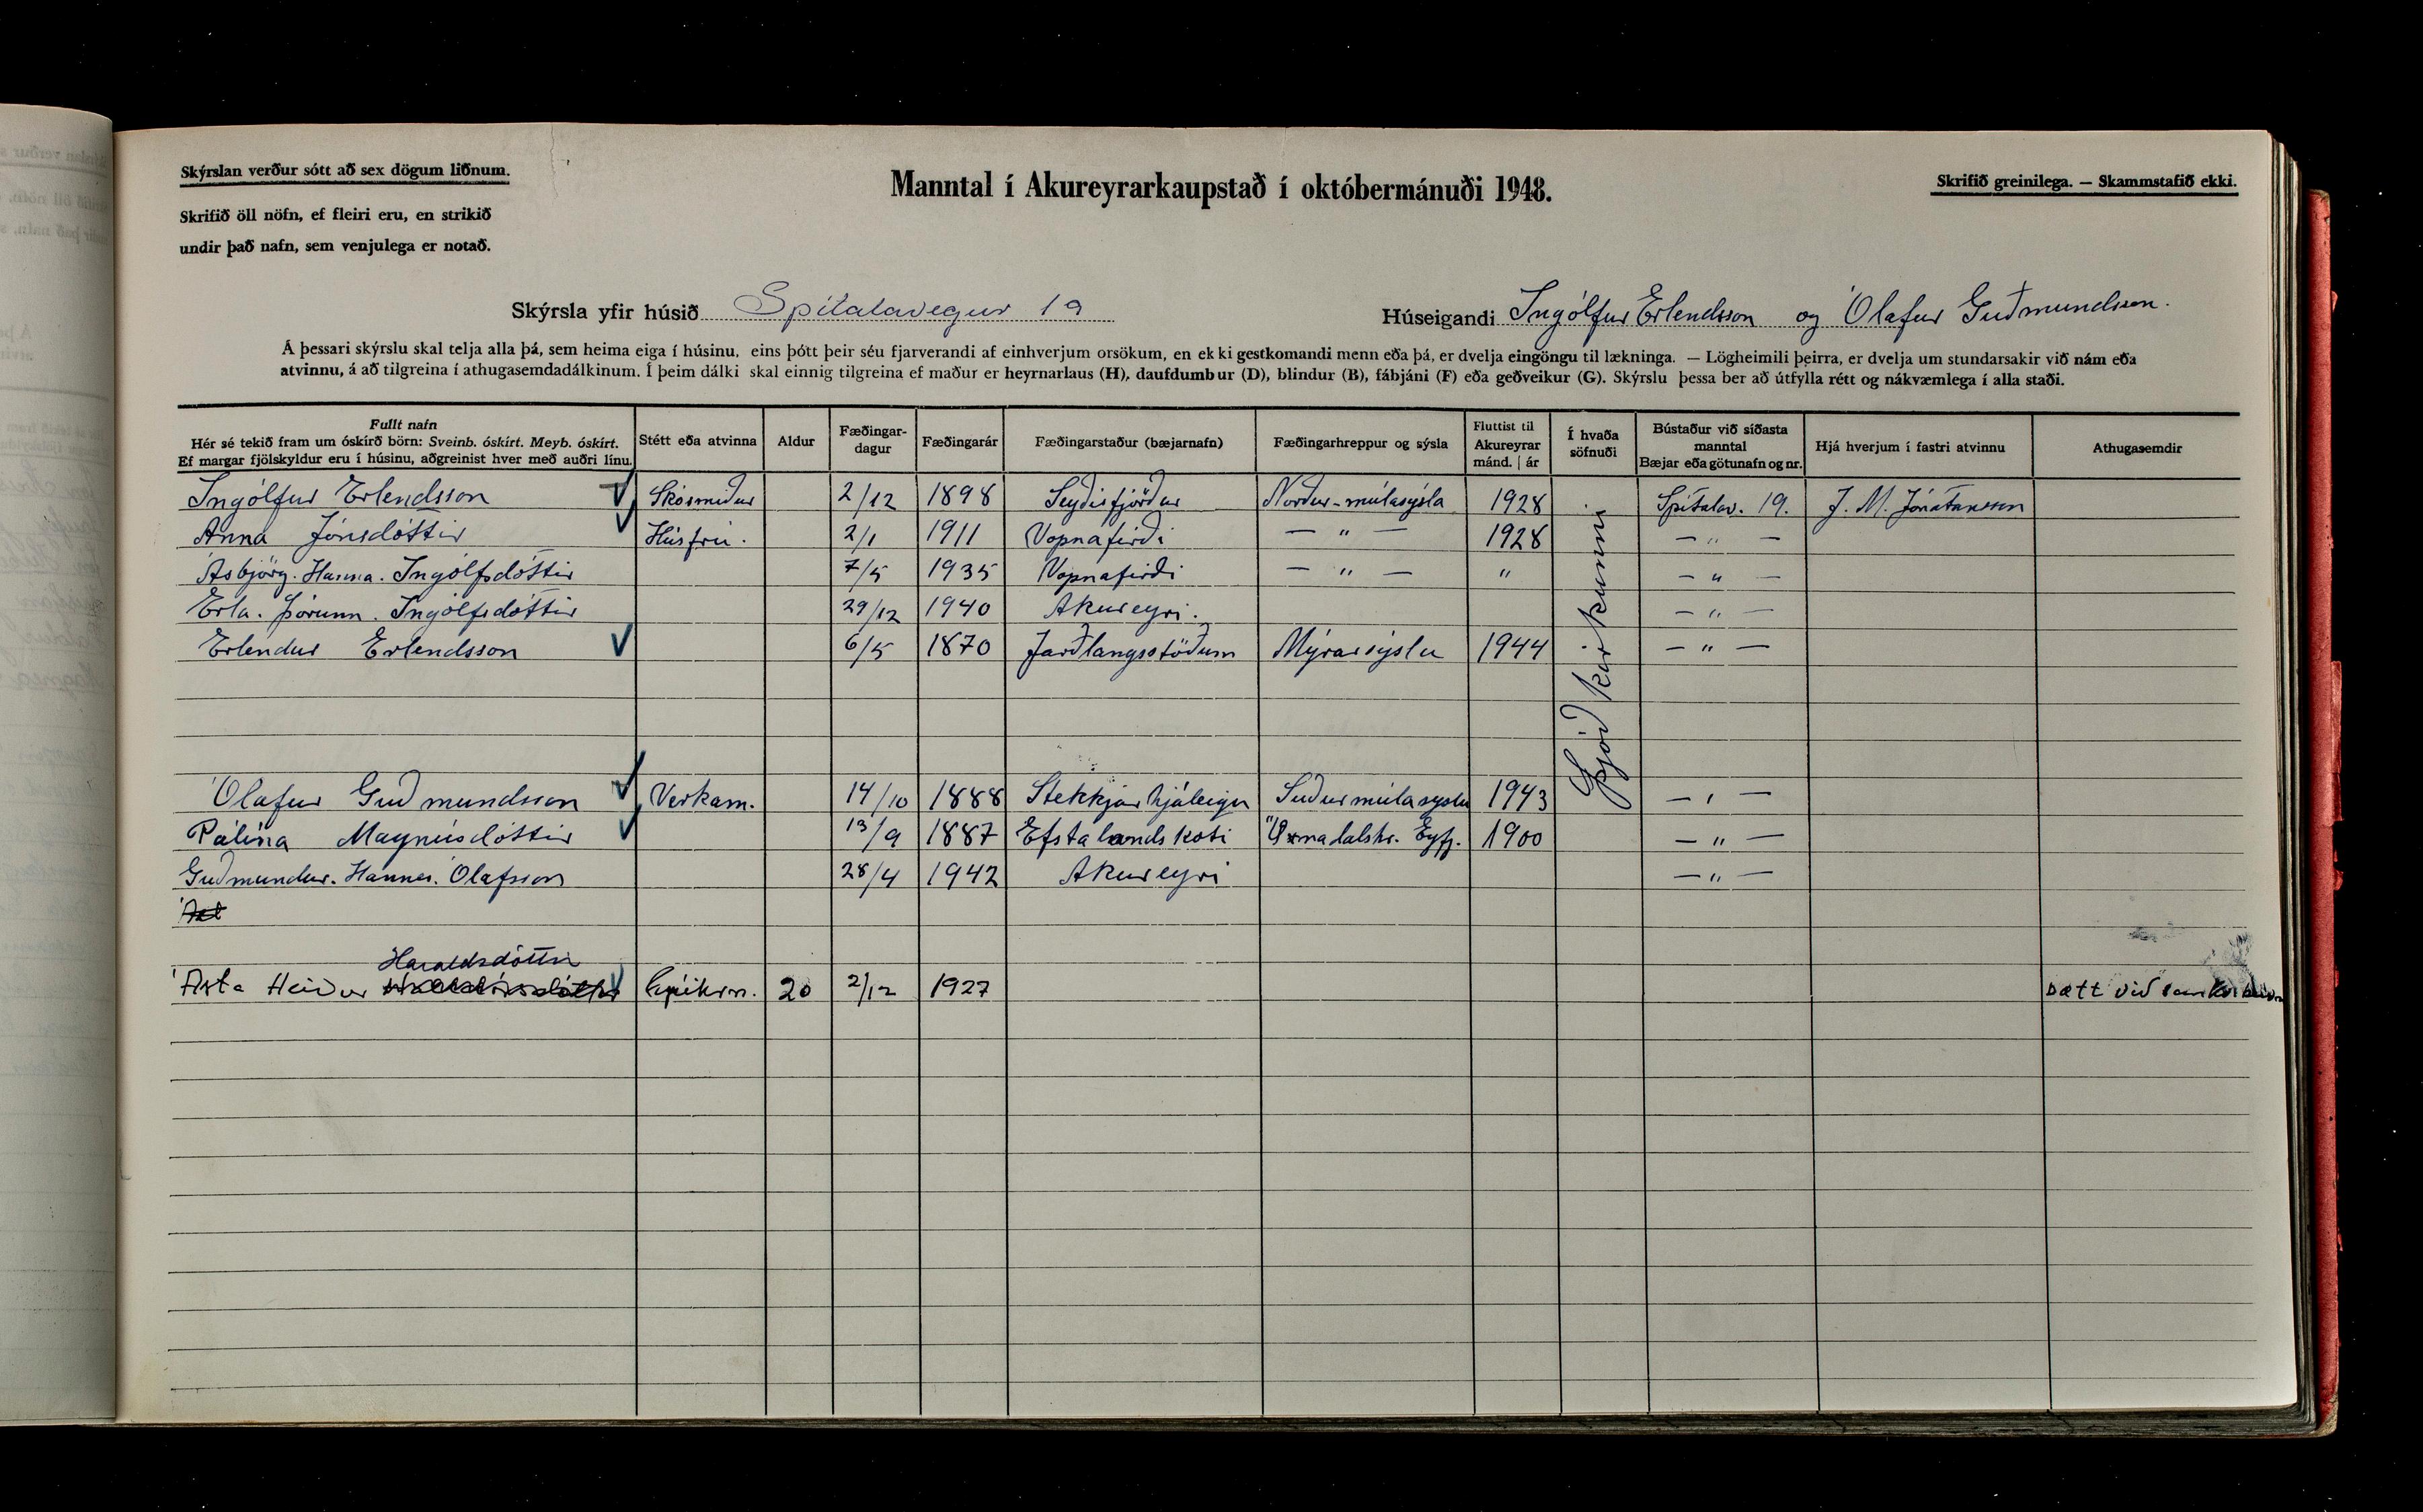 Skýrslan verður sótt að sex dögum liðnum.
Manntal í Akureyrarkaupstað í októbermánuði 1948.
Skrifið greinilega. — Skammstafið ekki.
Skrifið öll nöfn, ef fleiri eru, en strikið
undir það nafn, sem venjulega er notað.
Skýrsla yfir húsið Spítalavegur 19
Húseigandi Ingólfur Erlendsson og Ólafur Guðmundsson.
Á þessari skýrslu skal telja alla þá, sem heima eiga í húsinu, eins þótt þeir séu fjarverandi af einhverjum orsökum, en ekki gestkomandi menn eða þá, er dvelja eingöngu til lækninga. — Lögheimili þeirra, er dvelja um stundarsakir við nám eða
atvinnu, á að tilgreina í athugasemdadálkinum. Í þeim dálki skal einnig tilgreina ef maður er heyrnarlaus (H), daufdumbur (D), blindur (B), fábjáni (F) eða geðveikur (G). Skýrslu þessa ber að útfylla rétt og nákvæmlega í alla staði.
Fullt nafn
Hér sé tekið fram um óskírð börn: Sveinb. óskírt. Meyb. óskírt.
Ef margar fjölskyldur eru í húsinu, aðgreinist hver með auðri línu.
Stétt eða atvinna
Aldur
Fæðingar-
dagur
Fæðingarár
Fæðingarstaður (bæjarnafn)
Fæðingarhreppur og sýsla
Fluttist til
Akureyrar
mánd. | ár
Í hvaða
söfnuði
Bústaður við síðasta
manntal
Bæjar eða götunafn og nr.
Hjá hverjum í fastri atvinnu
Athugasemdir
Ingólfur Erlendsson Skósmiður 2/12 1898 Seyðisfjörður Norður-múlasýsla 1928 Spítalav. 19. J. M. Jónatansson
Anna Jónsdóttir Húsfrú. 2/1 1911 Vopnafirði — " 1928 — " —
Ásbjörg. Hanna. Ingólfsdóttir 7/5 1935 Vopnafirði — " — " — " —
Erla. Þórunn. Ingólfsdóttir 29/12 1940 Akureyri. — " —
Erlendur Erlendsson 6/5 1870 Jarðlangsstöðum Mýrarsýslu 1944 — " —
Þjóðkirkjunni
Ólafur Guðmundsson Verkam. 14/10 1888 Stekkjarhjáleigu Suðurmúlasyslu 1943 — " —
Pálína Magnúsdóttir 13/9 1887 Efstalandskoti Öxnadalshr. Eyfj. 1900 — " —
Guðmundur. Hannes. Ólafsson 28/4 1942 Akureyri — " —
Haraldsdóttir
Ásta Heiður 20 2/12 1927 bætt við